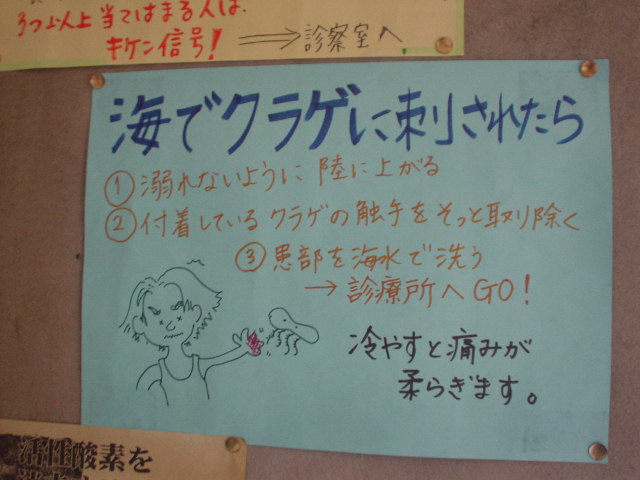 3つ以上当てはまる人は、
キケン信号! ⟹ 診察室へ
海でクラゲに刺されたら
① 溺れないように 陸に上がる
② 付着しているクラゲの触手をそっと取り除く
③ 患部を海水で洗う
→ 診療所へGO!
冷やすと痛みが
柔らぎます。
活性酸素を